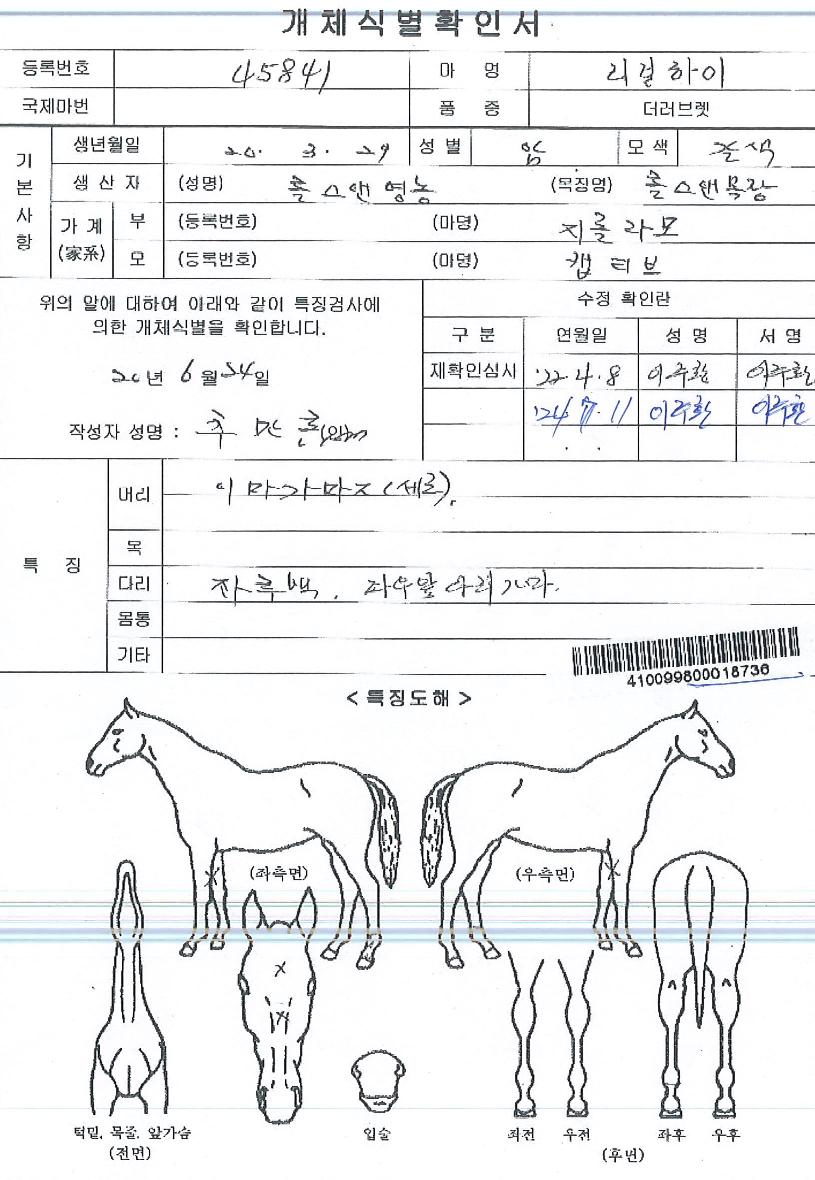 개체식별확인서
등록번호 45841 마 명 리걸하이
국제마번 품 종 더러브렛
기본사항
생년월일 20. 3. 29 성별 암 모색 갈색
생산자 (성명) 홀스앤영농 (목장명) 홀스앤목장
가계 (家系) 부 (등록번호) (마명) 지롤라모
모 (등록번호) (마명) 캡티브
위의 말에 대하여 아래와 같이 특징검사에
의한 개체식별을 확인합니다.
20년 6월 24일
작성자 성명 :
수정 확인란
구분 연월일 성명 서명
재확인심시 '22.4.8 이주환 이주환
'24.7.11 이주환 이주환
특 징
머리 이마가마2(세로).
목
다리 좌우앞다리가마.
몸통
기타
410099800018736
< 특징도해 >
(좌측면) (우측면)
턱밑, 목줄, 앞가슴 입술 좌전 우전 좌후 우후
(전면) (후면)